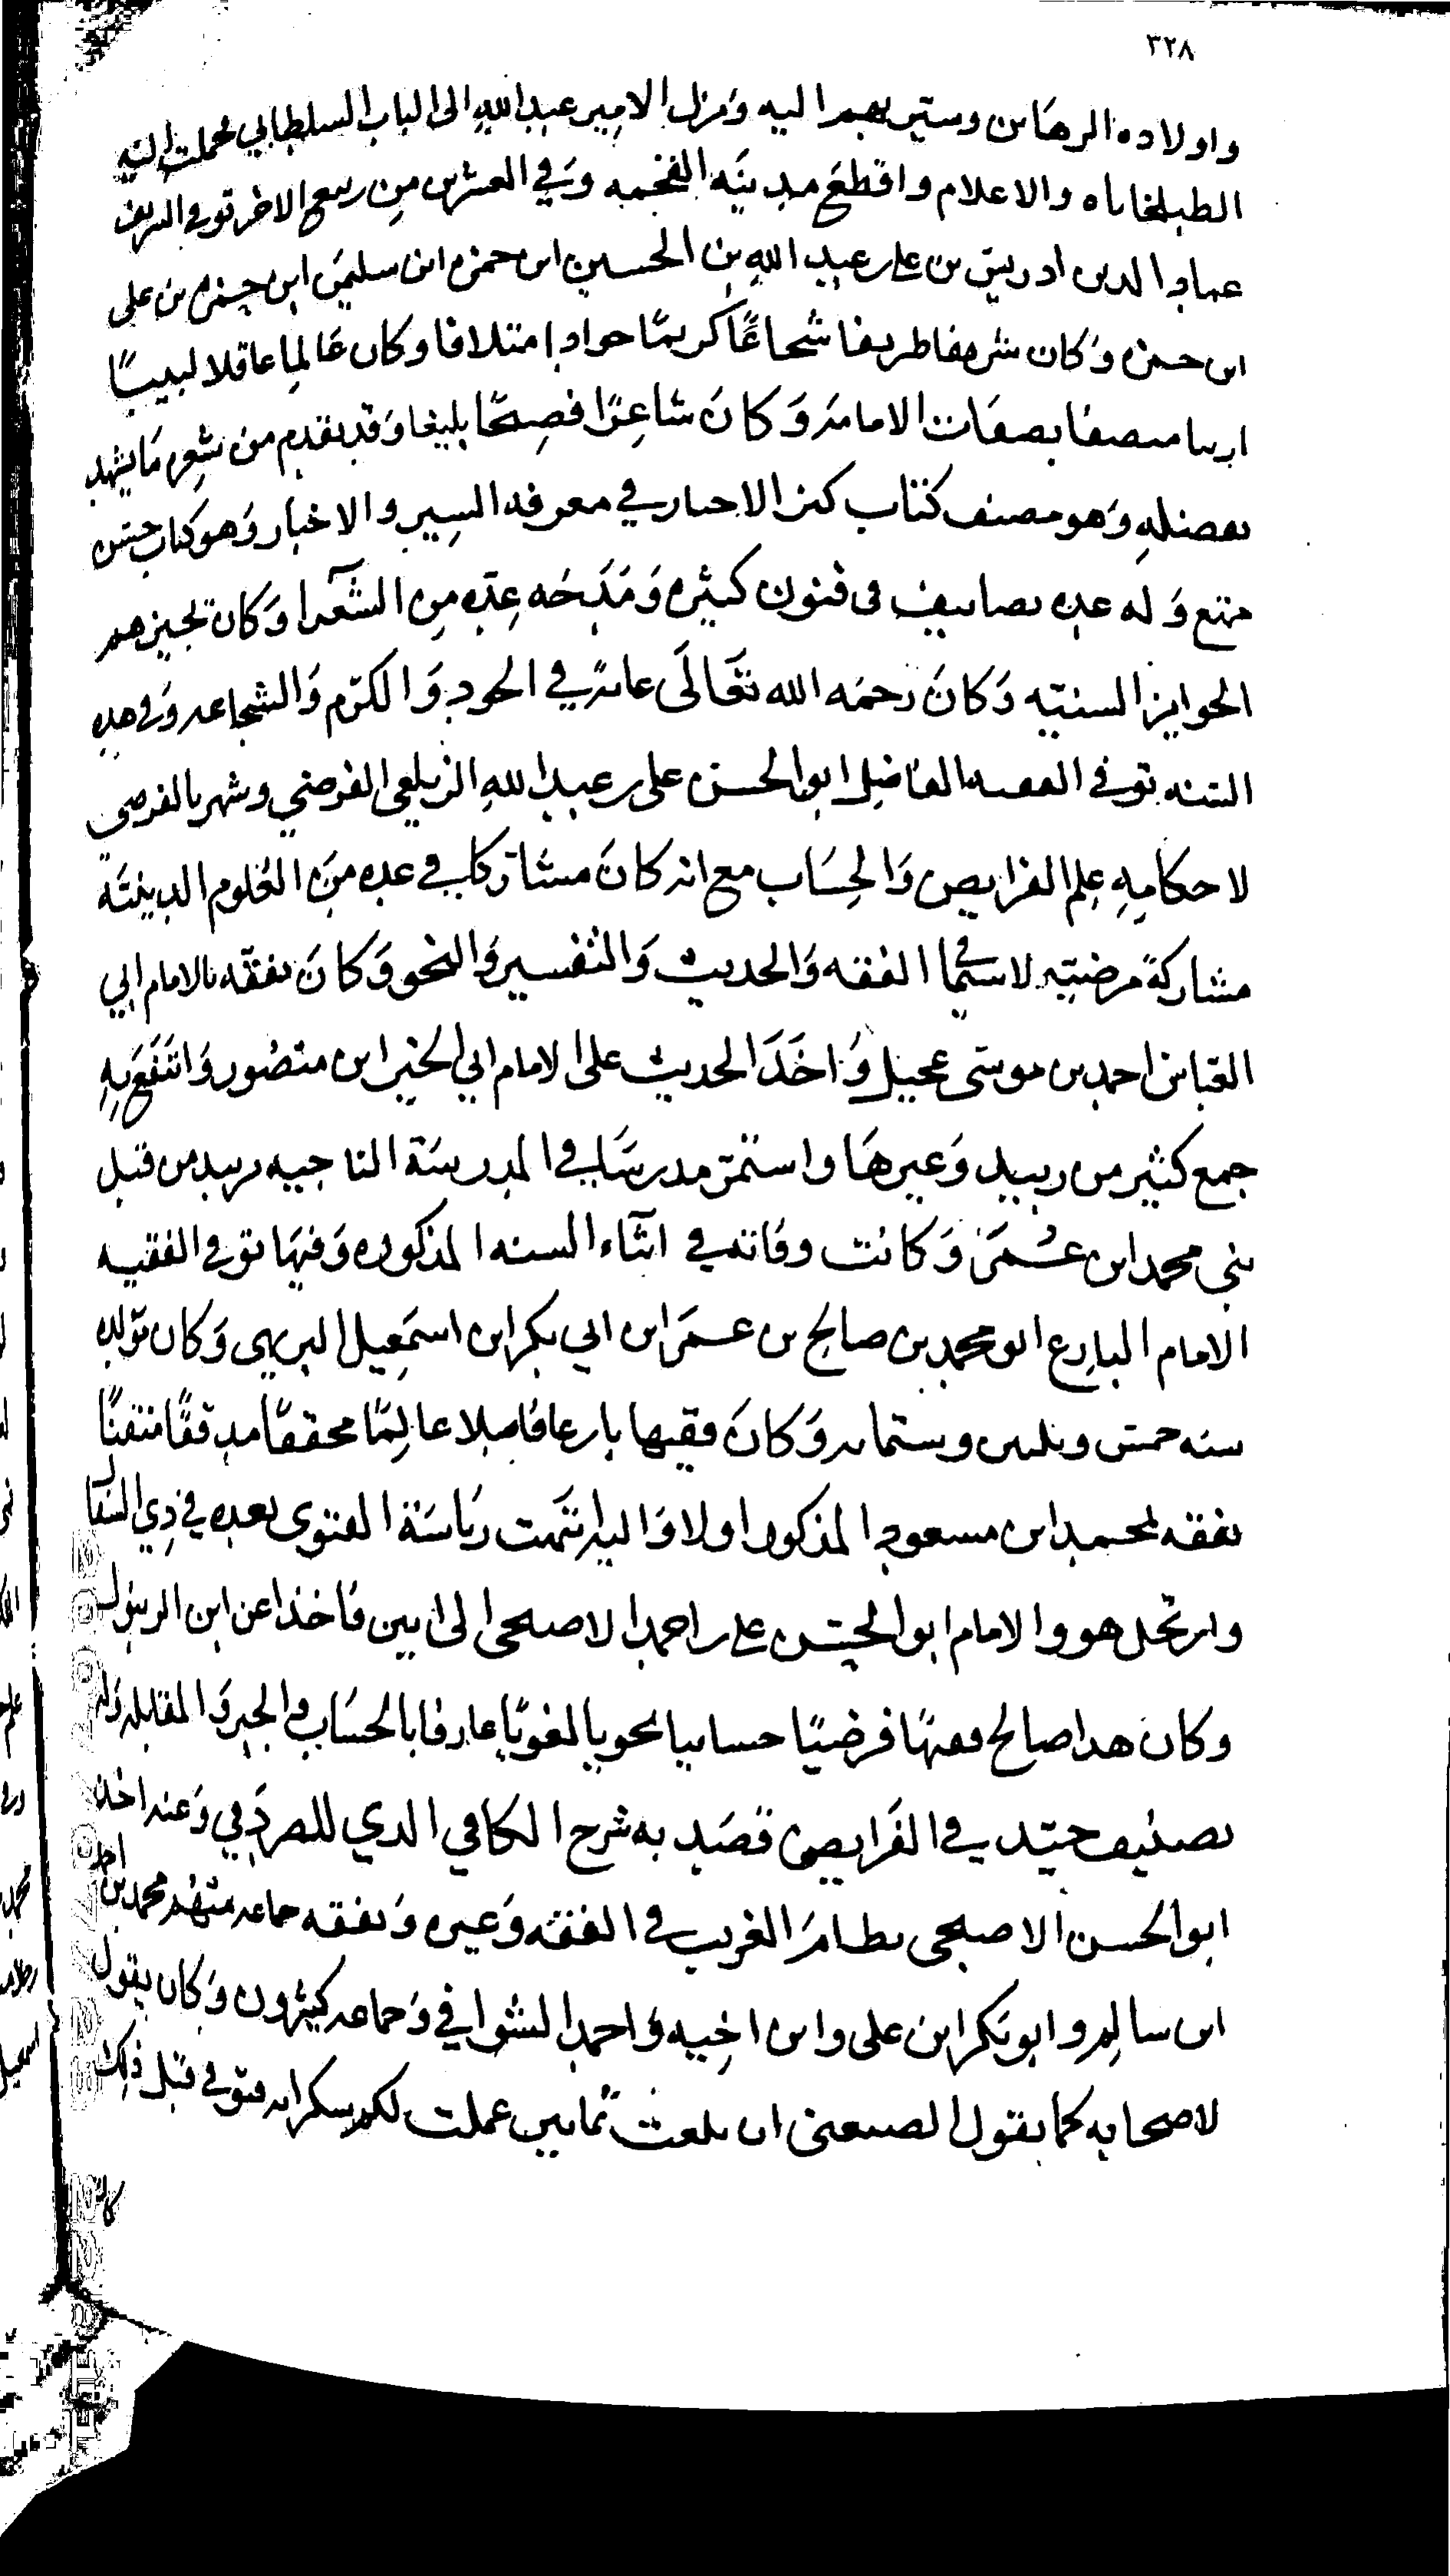 ٣٢٨
واولاده الرهاين وستيربهم اليه ونزل الامير عبد الله الى الباب السلطاني فحملت اليه
الطبلخاناه والاعلام واقطع مدينه القحمه وفي العشرين من ربيع الاخر توفي الشريف
عماد الدين ادريس بن علي بن عبد الله بن الحسين ابن حمزه ابن سليمن ابن حمزه بن علي
ابن حمزه وكان شريفا ظريفا شجاعًا كريمًا جوادا متلافا وكان عالما عاقلا لبيبًا
اريبا متصفا بصفات الامامه وكان شاعرًا فصيحًا بليغا وقد تقدم من شعره ما يشهد
بفضله وهو مصنف كتاب كنز الاخبار في معرفه السير والاخبار وهو كتاب حسن
ممتع وله عده تصانيف في فنون كثيره ومدحه عده من الشعرا وكان يجيزهم
الجوايز السنيه وكان رحمه الله تعالى غاية في الجود والكرم والشجاعه وفي هذه
السنه توفي الفقيه الفاضل ابو الحسن علي بن عبد الله الزيلعي الفرضي وشهر بالفرضي
لاحكامه علم الفرايض والحساب مع انه كان مشاركا في عده من العلوم الدينية
مشاركة مرضيه لا سيما في الفقه والحديث والتفسير والنحو وكان تفقه بالامام ابي
العباس احمد بن موسى عجيل واخذ الحديث على الامام ابي الخير ابن منصور وانتفع به
جمع كثير من زبيد وغيرها واستمر مدرسًا في المدرسة التاجيه بزبيد من قبل
بني محمد ابن عمر وكانت وفاته في اثناء السنه المذكوره وفيها توفي الفقيه
الامام البارع ابو محمد بن صالح بن عمر ابن ابي بكر ابن اسمعيل البريهي وكان تولده
سنه خمس وثلثين وستمايه وكان فقيها بارعا فاضلا عالمًا محققًا مدققًا متقنًا
تفقه بمحمد ابن مسعود المذكور اولا واليه انتهت رياسة الفتوى بعده في ذي السفال
وارتحل هو والامام ابو الحسن علي بن احمد الاصبحي الى ابين فاخذا عن ابن الرسول
وكان هذا صالح فقيهًا فرضيًا حسابيا نحويا لغويًا عارفا بالحساب والجبر والمقابله وله
تصنيف جيد في الفرايض قصد به شرح الكافي الذي للصردفي وعنه اخذ
ابو الحسن الاصبحي نظام الغريب في الفقه وغيره وتفقه جماعه منهم محمد بن احمد
ابن سالم وابو بكر ابن علي وابن اخيه واحمد الشوافي وجماعه كثيرون وكان يقول
لاصحابه كما يقول الصعبى ان بلغت ثمانين عملت لكم سكرانه فتوفي قبل ذلك
كان